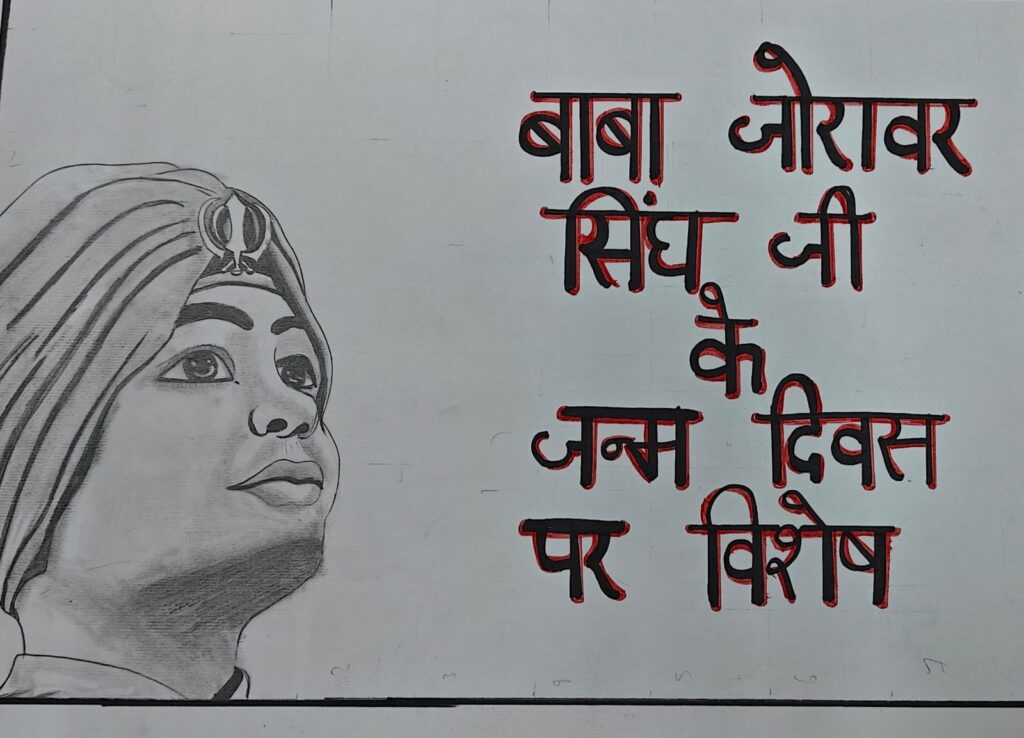 बाबा जोरावर
सिंघ जी
के
जन्म दिवस
पर विशेष